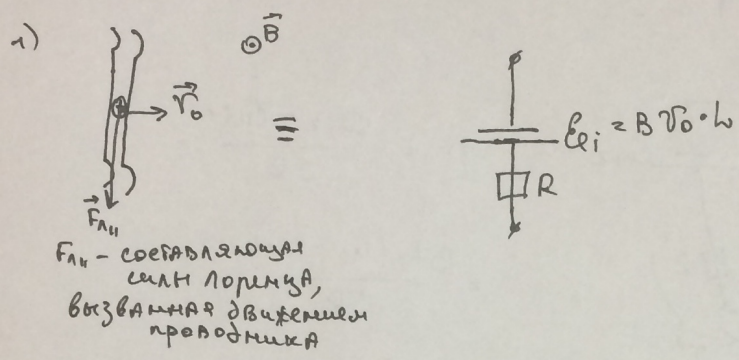 1)
B⃗
V⃗₀
≡
ℰᵢ = B V₀ · L
R
F⃗л॥
Fл॥ – составляющая
силы Лоренца,
вызванная движением
проводника